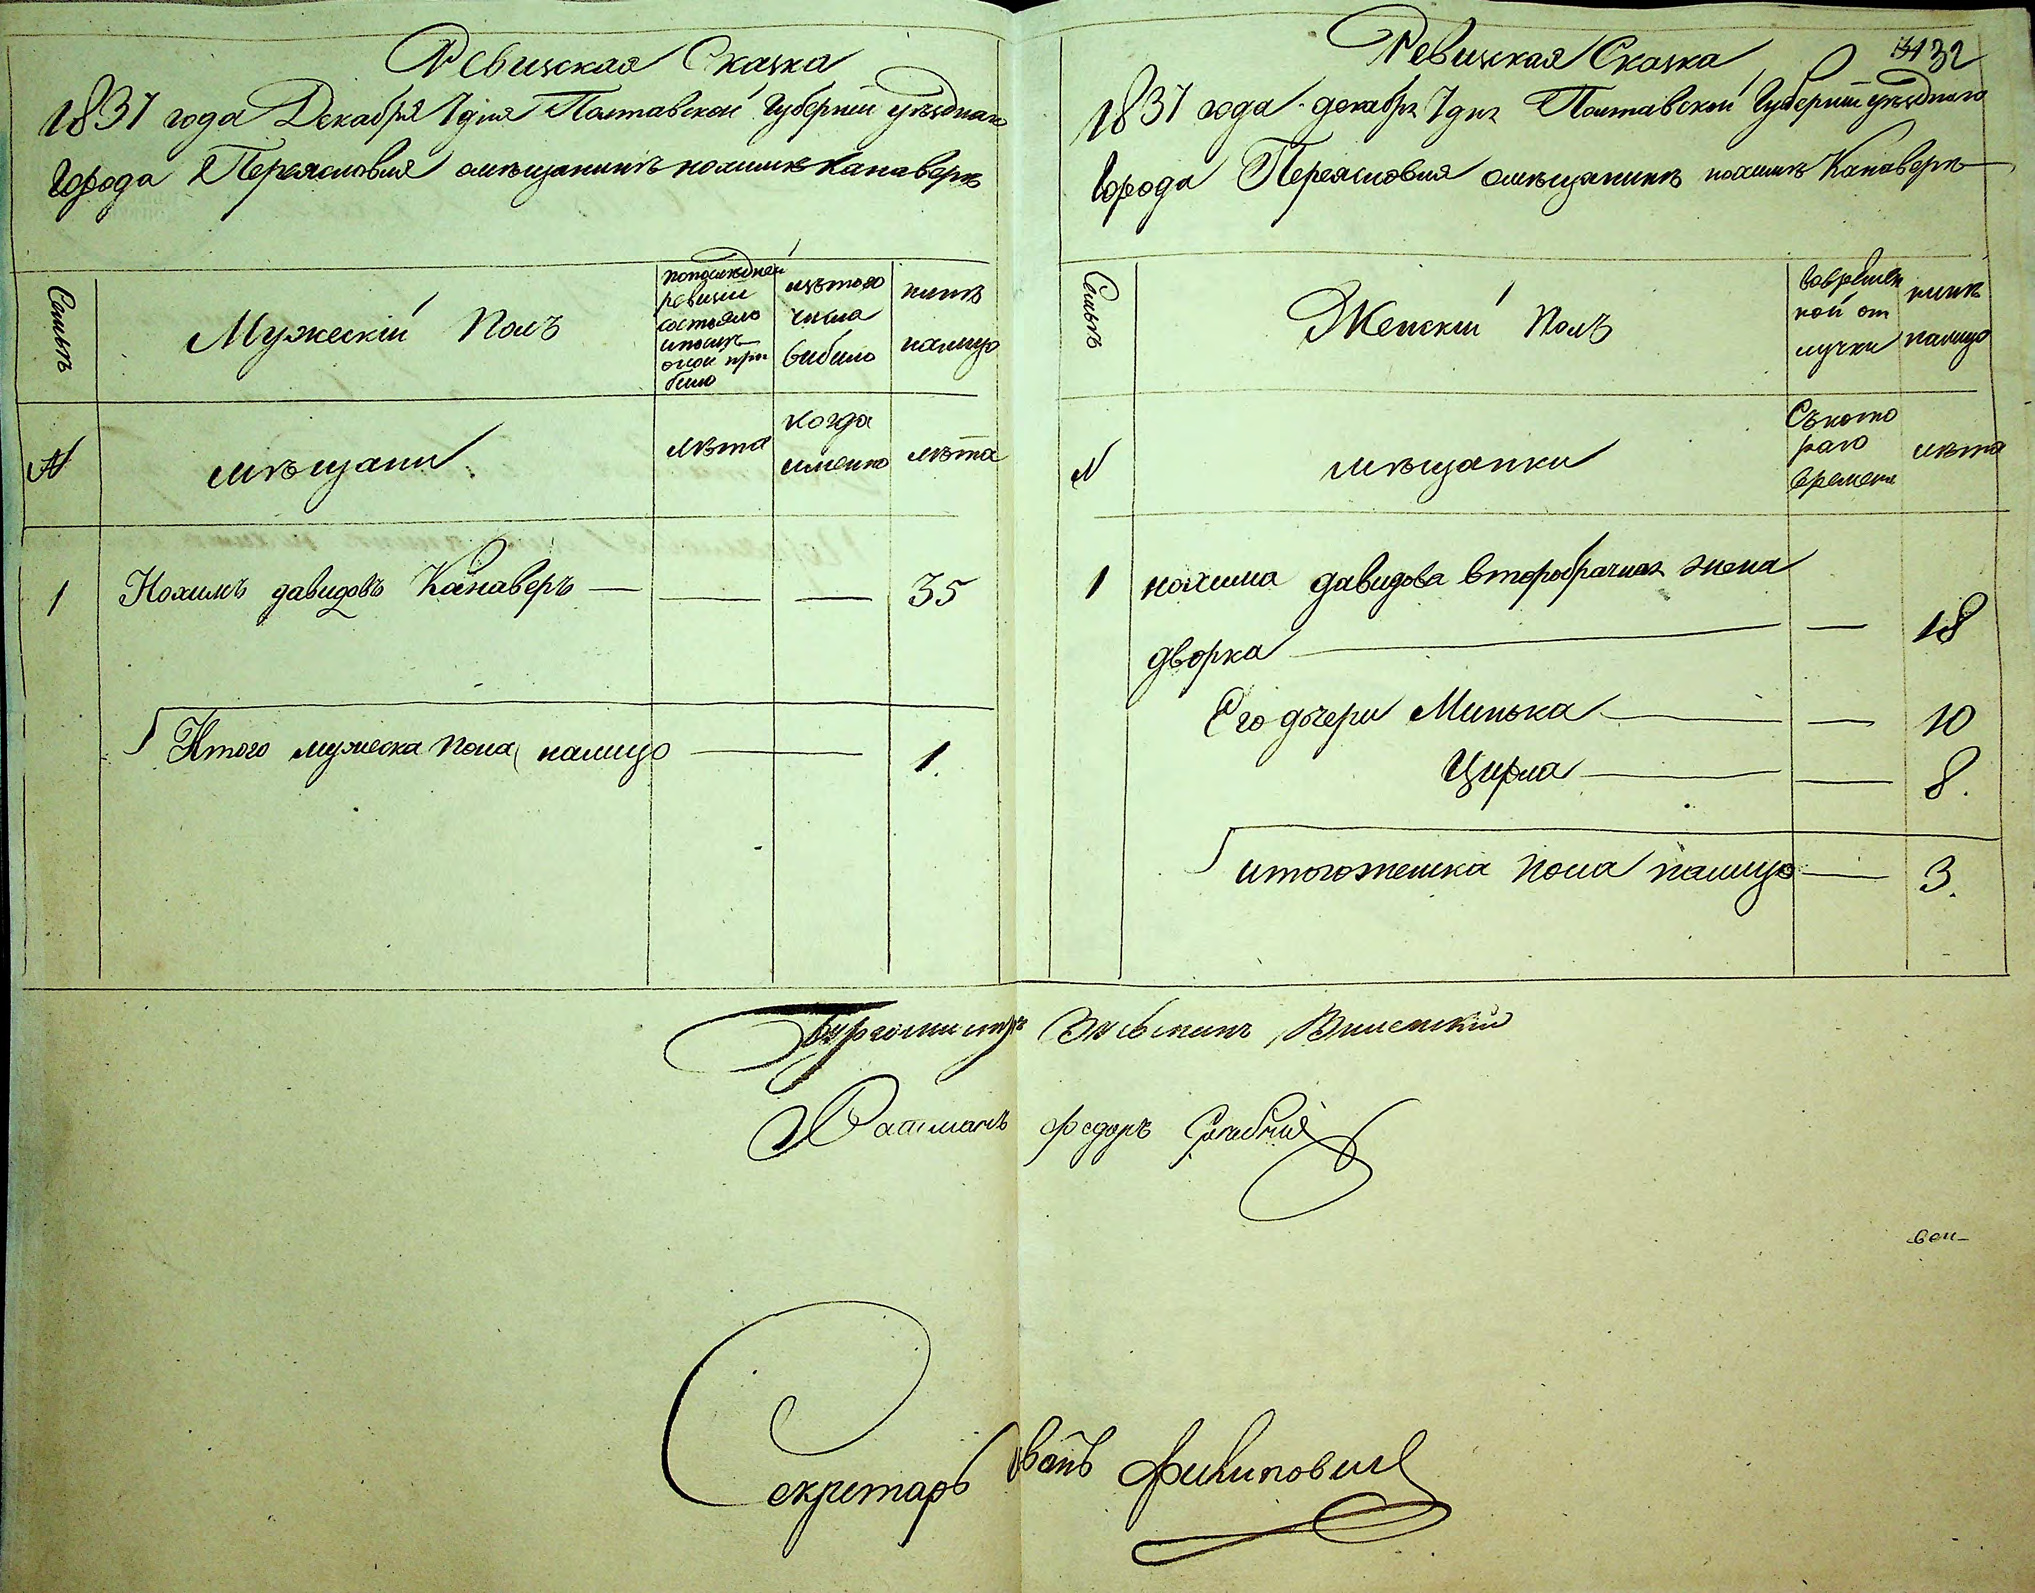 Ревизская Сказка
1837 года Декабря 7 дня Полтавской Губернии уѣзднаго
Города Переяславля омѣщанинѣ нохимѣ Канаверѣ
Семьѣ
Мужескій Полъ
попослѣдней
ревизіи
состояло
ипослѣ
оной при
было
изтого
числа
выбыло
нынѣ
налицо
N
мѣщани
лѣта
когда
именно
лѣта
1 Нохимъ давидовъ Канаверъ — — — 35
Итого мужеска пола налицо — 1.
132
Ревизская Сказка
1837 года декабря 7 дня Полтавской Губерніи уѣзднаго
Города Переяславля омѣщанинѣ нохимѣ Канаверѣ
Семьѣ
Женскій Полъ
вовремен
ной от
лучки
нынѣ
налицо
N
мѣщанки
Съкото
раго
времени
лѣта
1 нохима давидова второбрачная жена
дворка — — 18
Его дочери Минька — — 10
Цирла — — 8.
итого женска пола налицо — 3.
Бургомистръ Вилемскій
Ратманъ федоръ
Секретарь Иванъ Филиповичъ